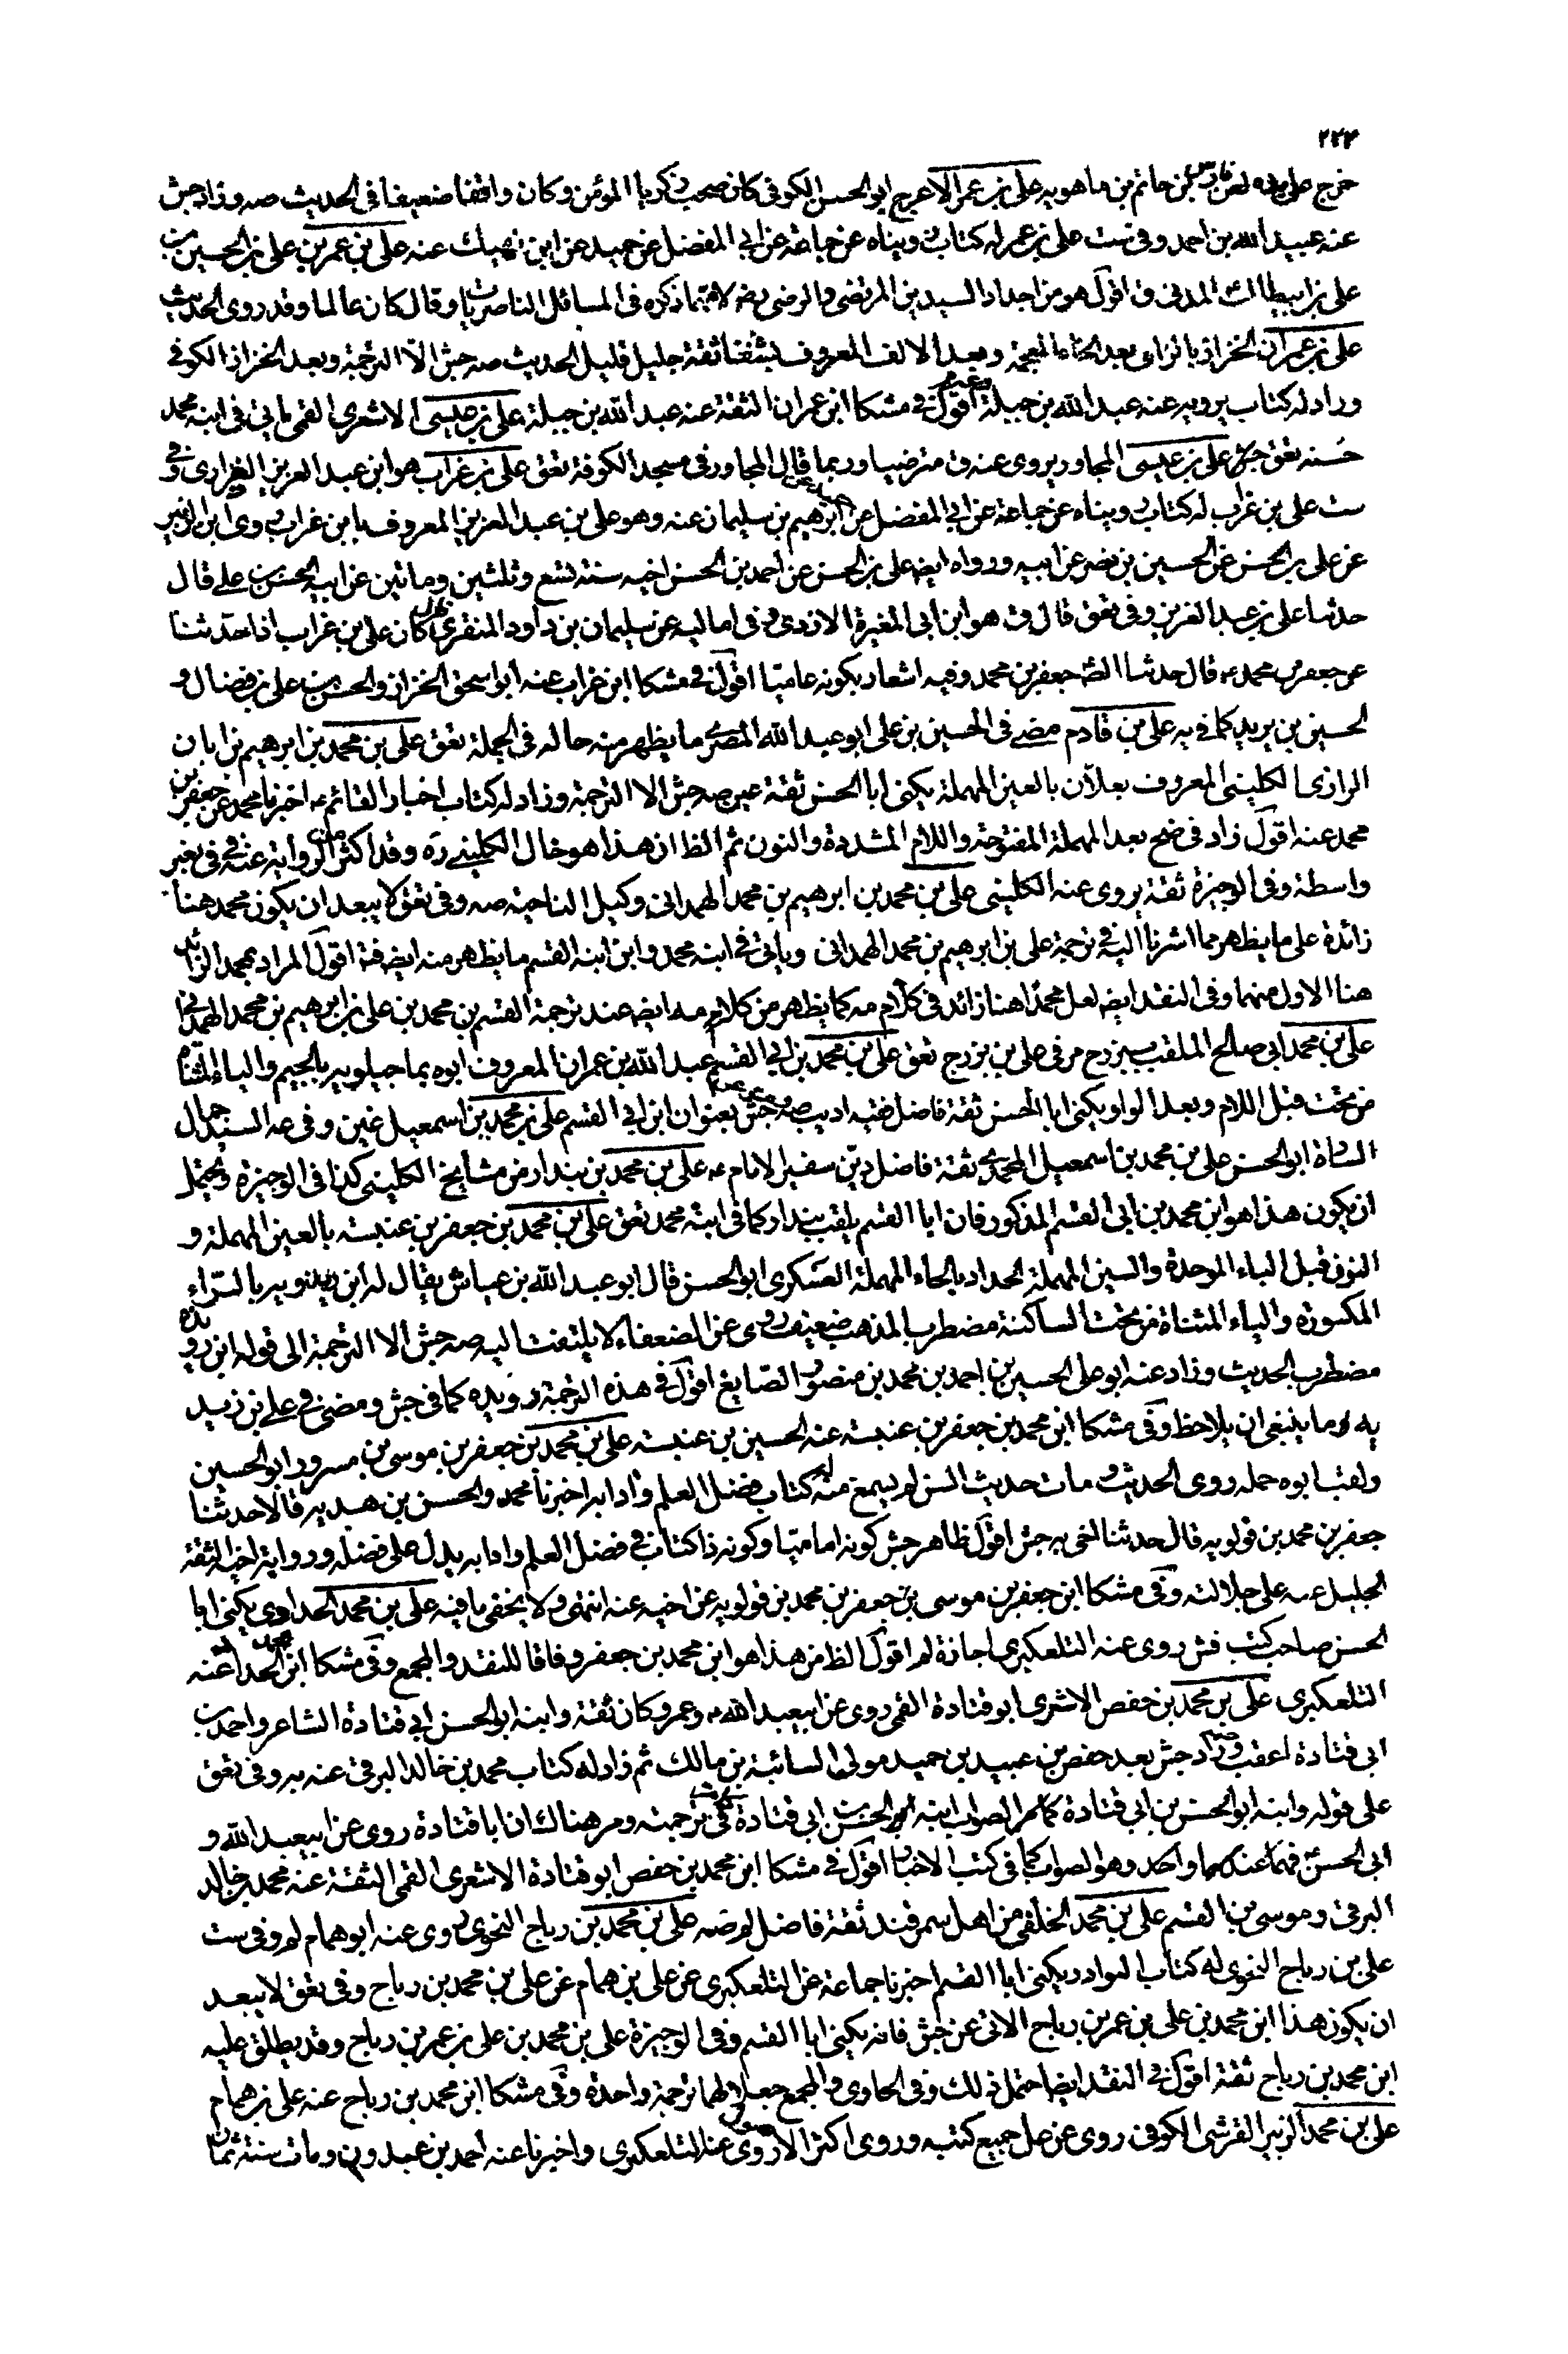 ٢٢٣
خرج على يديه لعن فارس بن حاتم بن ماهويه علي بن عمر الاعرج ابو الحسن الكوفى كان صحب زكريا المؤمن وكان واقفا ضعيفا فى الحديث صه وزاد جش
عنه عبيد الله بن احمد وفى ست على بن عمر له كتاب رويناه عن جماعة عن ابي المفضل عن حميد عن ابن نهيك عنه على بن عمر بن على بن الحسين بن
على بن ابيطالب المدنى ق اقول هو من اجداد السيدين المرتضى والرضى رضه لامهما ذكره فى المسائل الناصريات وقال كان عالما وقد روى الحديث
على بن عمران الخزاز بالزاى بعد الخاء المعجمة وبعد الالف المعروف بشفا ثقة جليل قليل الحديث صه جش الا الترجمة وبعد الخزاز الكوفى
وزاد له كتاب يرويه عنه عبد الله بن جبلة وغيره اقول فى مشكا ابن عمران الثقة عنه عبد الله بن جبلة على بن عيسى الاشعرى القمى ياتى فى ابنه محمد
حسنه تعق على بن عيسى المجاور يروى عنه ق مترضيا وربما قال المجاور فى مسجد الكوفة تعق على بن غراب هو ابن عبد العزيز الفزارى ق وفى
ست على بن غراب له كتاب رويناه عن جماعة عن ابي المفضل عن ابرهيم بن سليمان عنه وهو على بن عبد العزيز المعروف بابن غراب روى ابن الزبير
عن على بن الحسن عن الحسين بن نصر عن ابيه ورواه ايضا على بن الحسن عن احمد بن الحسن اخيه سنة تسع وثلثين ومائتين عن ابيه الحسن بن على قال
حدثنا على بن عبد العزيز وفى تعق قال ق هو ابن ابى المغيرة الازدى وفى اماليه عن سليمان بن داود المنقرى قال كان على بن غراب اذا حدثنا
عن جعفر بن محمد ع قال حدثنا الصادق جعفر بن محمد وفيه اشعار بكونه عاميا اقول فى مشكا ابن غراب عنه ابو اسحق الخزاز والحسن بن على بن فضال و
الحسين بن يزيد كما فى يه على بن قادم مضى فى الحسين بن على ابو عبد الله المصرى ما يظهر منه حاله فى الجملة تعق على بن محمد بن ابرهيم بن ابان
الرازى الكلينى المعروف بعلان بالعين المهملة يكنى ابا الحسن ثقة عين صه جش الا الترجمة وزاد له كتاب اخبار القائم ع اخبرنا محمد عن جعفر بن
محمد عنه اقول زاد فى ضح بعد المهملة المفتوحة واللام المشددة والنون ثم الظ ان هذا هو خال الكلينى ره وقد اكثر من الرواية عنه فى فى بغير
واسطة وفى الوجيزة ثقة يروى عنه الكلينى على بن محمد بن ابرهيم بن محمد الهمدانى وكيل الناحية صه وفى تعق لا يبعد ان يكون محمد هنا
زائدة على ما يظهر مما اشرنا اليه فى ترجمة على بن ابرهيم بن محمد الهمدانى وياتى فى ابنه محمد وابن ابنه القسم ما يظهر منه ايضا فت اقول المراد بمحمد الزائد
هنا الاول منهما وفى النقد ايضا لعل محمدا هنا زائد فى كلام صه كما يظهر من كلام صه ايضا عند ترجمة القسم بن محمد بن على بن ابرهيم بن محمد الهمدانى
على بن محمد ابى صالح الملقب ببزرج مر فى على بن بزرج تعق على بن محمد بن ابي القسم عبد الله بن عمران المعروف ابوه بماجيلويه بالجيم والياء المثناة
من تحت قبل اللام وبعد الواو يكنى ابا الحسن ثقة فاضل فقيه اديب صه جش بعنوان ابن ابى القسم على بن محمد بن اسمعيل غين وفى عه السيد جمال
السادة ابو الحسن على بن محمد بن اسمعيل المحمدى ثقة فاضل دين سفير الامام ع على بن محمد بن بندار من مشايخ الكلينى كذا فى الوجيزة ويحتمل
ان يكون هذا هو ابن محمد بن ابى القسم المذكور فان ابا القسم يلقب بندار كما فى ابنه محمد تعق على بن محمد بن جعفر بن عنبسة بالعين المهملة و
النون قبل الباء الموحدة والسين المهملة الحداد بالحاء المهملة العسكرى ابو الحسن قال ابو عبد الله بن عياش يقال له ابن ريدويه بالراء
المكسورة والياء المثناة من تحت الساكنة مضطرب المذهب ضعيف روى عن الضعفاء لا يلتفت اليه صه جش الا الترجمة الى قوله ابن رويده
مضطرب الحديث وزاد عنه ابو على الحسين بن احمد بن محمد بن منصور الصايغ اقول فى هذه الترجمة رويده كما فى جش ومضى فى على بن زيد
يه وما ينبغى ان يلاحظ وفى مشكا ابن محمد بن جعفر بن عنبسة عنه الحسين بن عنبسة على بن محمد بن جعفر بن موسى بن مسرور ابو الحسين
ولقب ابوه حمله روى الحديث ومات حديث السن لم يسمع منه له كتاب فضل العلم وادابه اخبرنا محمد والحسن بن هديه قالا حدثنا
جعفر بن محمد بن قولويه قال حدثنا اخى به جش اقول ظاهر جش كونه اماميا وكونه ذا كتاب فى فضل العلم وادابه يدل على فضله ورواية اخيه الثقة
الجليل عنه على جلالته وفى مشكا ابن جعفر بن موسى بن جعفر بن محمد بن قولويه عن اخيه عنه انتهى ولا يخفى ما فيه على بن محمد الحدادى يكنى ابا
الحسن صاحب كتب فش روى عنه التلعكبرى اجازة لم اقول الظ من هذا هو ابن محمد بن جعفر وفاقا للنقد والمجمع وفى مشكا ابن الحداد عنه
التلعكبرى على بن محمد بن حفص الاشعرى ابو قتادة القمى روى عن ابيعبد الله ع وعمر وكان ثقة وابنه ابو الحسن ابى قتادة الشاعر واحمد بن
ابى قتادة اعقب صه وزاد جش بعد حفص بن عبيد بن حميد مولى السائبة بن مالك ثم زاد له كتاب محمد بن خالد البرقى عنه به وفى تعق
على قوله وابنه ابو الحسن بن ابى قتادة كما مر الصواب ابنه الحسن بن ابى قتادة كما فى ترجمته ومر هناك ان ابا قتادة روى عن ابيعبد الله و
ابى الحسن ع فهما عندهما واحد وهو الصواب كما فى كتب الاخبار اقول فى مشكا ابن محمد بن حفص ابو قتادة الاشعرى القمى الثقة عنه محمد بن خالد
البرقى وموسى بن القسم على بن محمد الخلقى من اهل سمرقند ثقة فاضل لم صه على بن محمد بن رباح النحوى روى عنه ابو همام لم وفى ست
على بن رباح النحوى له كتاب النوادر يكنى ابا القسم اخبرنا جماعة عن التلعكبرى عن على بن همام عن على بن محمد بن رباح وفى تعق لا يبعد
ان يكون هذا ابن محمد بن على بن عمر بن رباح الاتى عن جش فانه يكنى ابا القسم وفى الوجيزة على بن محمد بن على بن عمر بن رباح وقد يطلق عليه
ابن محمد بن رباح ثقة اقول فى النقد ايضا احتمل ذلك وفى الحاوى والمجمع جعلا لهما ترجمة واحدة وفى مشكا ابن محمد بن رباح عنه على بن همام
على بن محمد الزبير القرشى الكوفى روى عن على جميع كتبه وروى اكثر الاصول روى عنه التلعكبرى واخبرنا عنه احمد بن عبدون ومات سنة ثمان